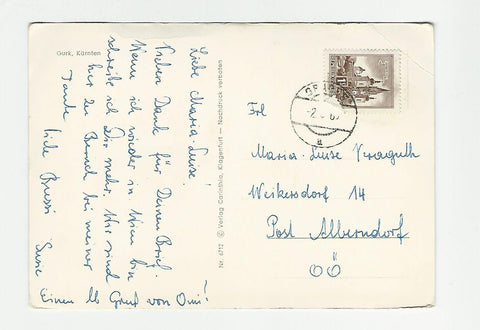 Gurk, Kärnten
Liebe Maria-Luise!
Vielen Dank für Deinen Brief.
Wenn ich wieder in Wien bin
schreibe ich Dir mehr. Wir sind
hier zu Besuch bei meiner
Tante
Viele Bussi Susie
Einen lb Gruß von Omi!
Nr. 6712 Verlag Carinthia, Klagenfurt — Nachdruck verboten
Frl
Maria-Luise
Weikersdorf 14
Post Alberndorf
OÖ